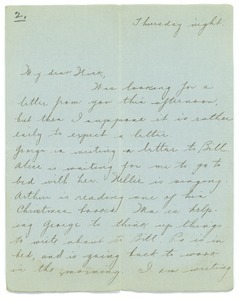 2.
Thursday night
My dear
Was looking for a
letter from you this afternoon,
but then I suppose it is rather
early to expect a letter.
George is writing a letter to Bill
Alice is waiting for me to go to
bed with her. Nellie is singing
Arthur is reading one of his
Christmas books. Ma is help-
ing George to think up things
to write about to Bill. Pa is in
bed, and is going back to work
in the morning. I am writing